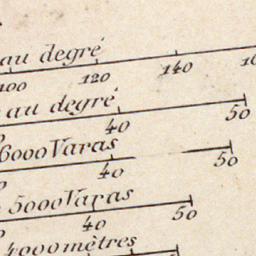 au degré
100 120 140
au degré
40 50
6000 Varas
40 50
5000 Varas
40 50
4000 mètres